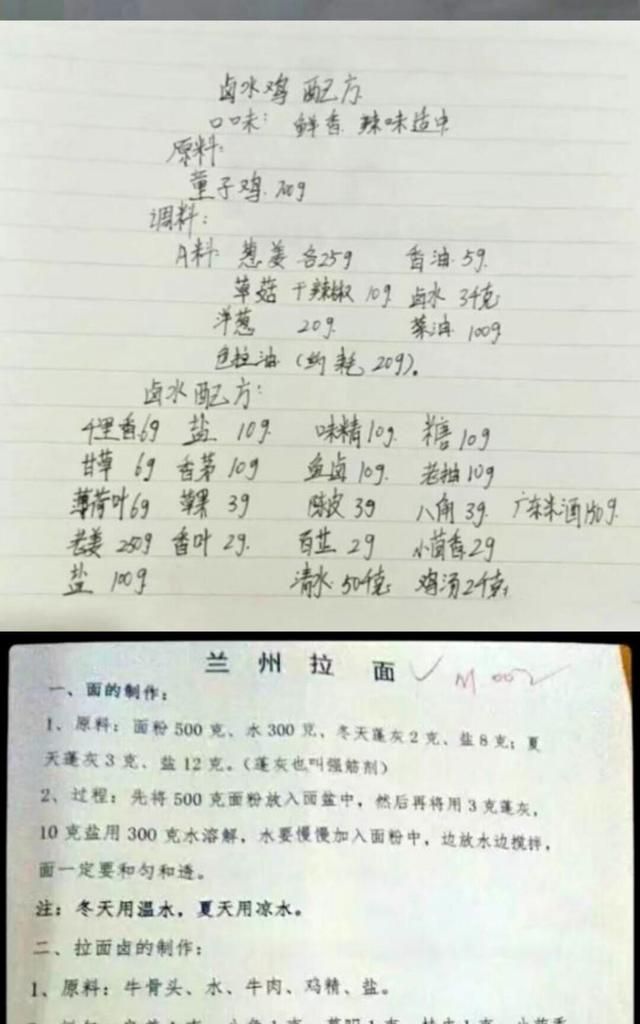 卤水鸡配方
口味: 鲜香 辣味适中
原料:
童子鸡 700g
调料:
A料 葱姜各25g 香油 5g
草菇 干辣椒 10g 卤水 3千克
洋葱 20g 菜油 100g
色拉油 (约耗 20g)。
卤水配方:
千里香6g 盐 10g 味精10g 糖10g
甘草 6g 香茅10g 鱼卤10g 老抽10g
薄荷叶6g 草果 3g 陈皮 3g 八角 3g 广东米酒150g
老姜 250g 香叶 2g 百芷 2g 小茴香2g
盐 100g 清水 50千克 鸡汤2千克
兰州拉面 M 002
一、面的制作:
1、原料: 面粉 500 克、水 300 克、冬天蓬灰 2 克、盐 8 克; 夏
天蓬灰 3 克、盐 12 克。(蓬灰也叫强筋剂)
2、过程: 先将 500 克面粉放入面盆中, 然后再将用 3 克蓬灰,
10 克盐用 300 克水溶解, 水要慢慢加入面粉中, 边放水边搅拌,
面一定要和匀和透。
注: 冬天用温水, 夏天用凉水。
二、拉面卤的制作:
1、原料: 牛骨头、水、牛肉、鸡精、盐。